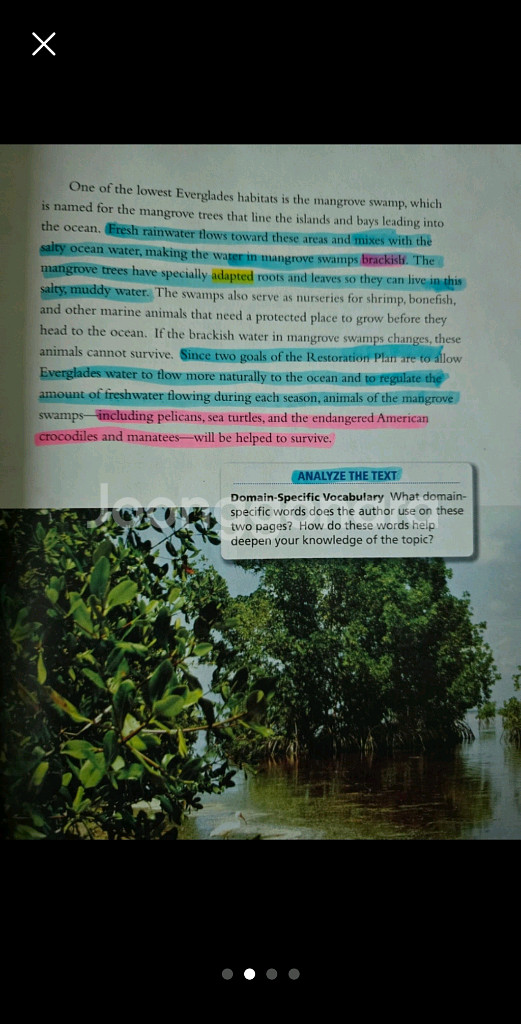 One of the lowest Everglades habitats is the mangrove swamp, which
is named for the mangrove trees that line the islands and bays leading into
the ocean. Fresh rainwater flows toward these areas and mixes with the
salty ocean water, making the water in mangrove swamps brackish. The
mangrove trees have specially adapted roots and leaves so they can live in this
salty, muddy water. The swamps also serve as nurseries for shrimp, bonefish,
and other marine animals that need a protected place to grow before they
head to the ocean. If the brackish water in mangrove swamps changes, these
animals cannot survive. Since two goals of the Restoration Plan are to allow
Everglades water to flow more naturally to the ocean and to regulate the
amount of freshwater flowing during each season, animals of the mangrove
swamps—including pelicans, sea turtles, and the endangered American
crocodiles and manatees—will be helped to survive.
ANALYZE THE TEXT
Domain-Specific Vocabulary What domain-
specific words does the author use on these
two pages? How do these words help
deepen your knowledge of the topic?